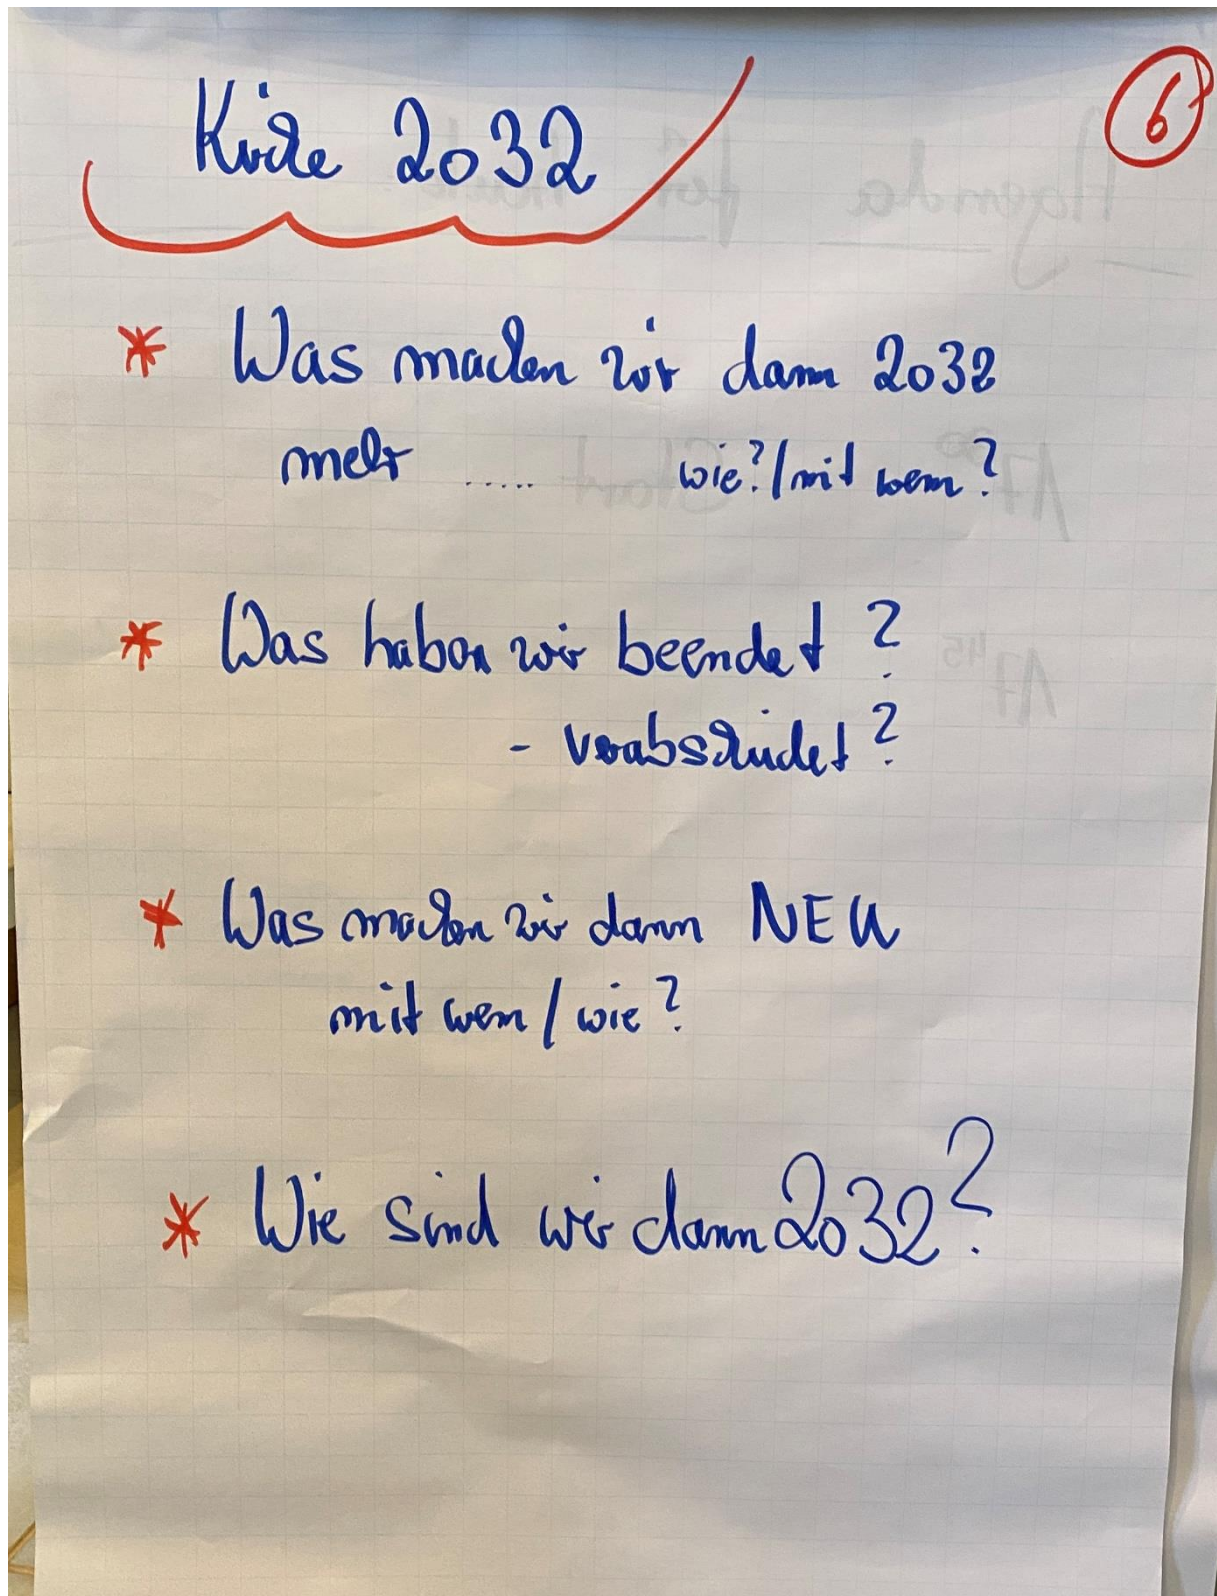 Kirche 2032
6
* Was machen wir dann 2032
mehr ..... wie?/mit wem?
* Was haben wir beendet?
- verabschiedet?
* Was machen wir dann NEU
mit wem / wie?
* Wie sind wir dann 2032?